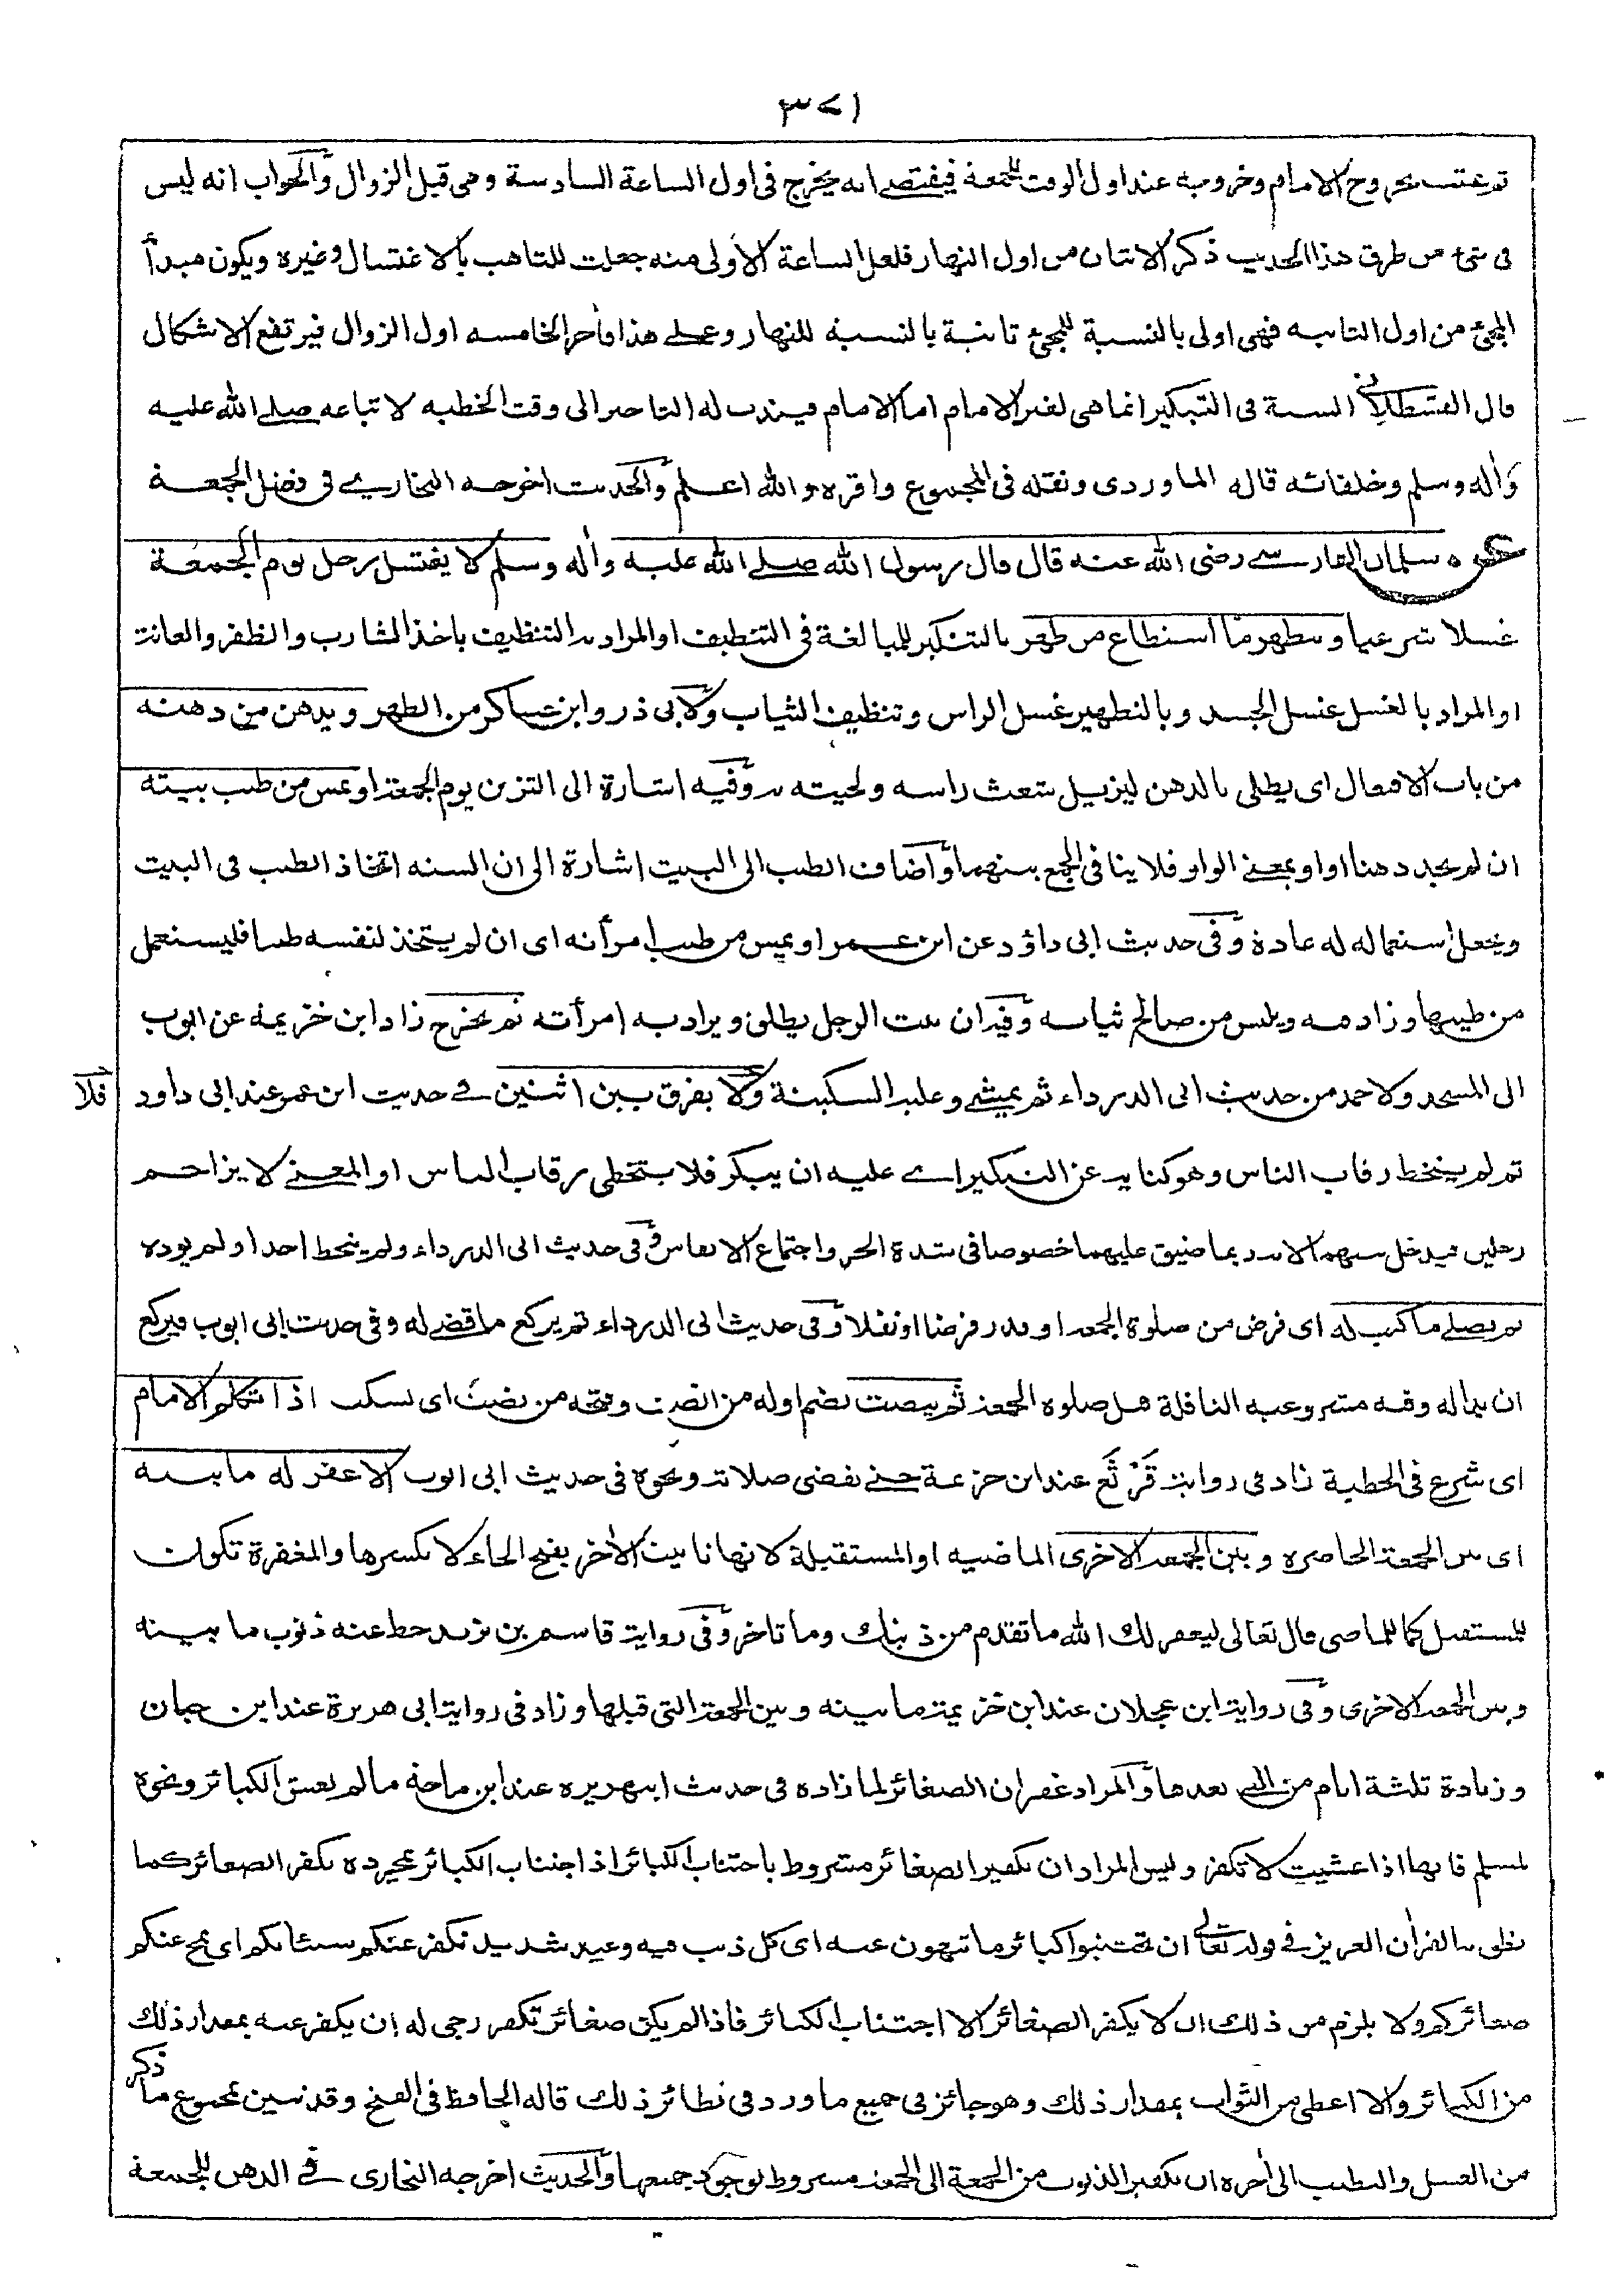 ٣٧١
ثم عقب بخروج الامام وخروجه عند اول الوقت للجمعة فيقتضے انه يخرج فى اول الساعة السادسة وهى قبل الزوال والجواب انه ليس
فى شئ من طرق هذا الحديث ذكر الاتيان من اول النهار فلعل الساعة الأولى منه جعلت للتاهب بالاغتسال وغيره ويكون مبدأ
المجئ من اول الثانيه فهى اولى بالنسبة للمجئ ثانية بالنسبة للنهار وعلے هذا فآخر الخامسه اول الزوال فيرتفع الاشكال
قال القسطلانى السنة فى التبكير انما هى لغير الامام اما الامام فيندب له التاخير الى وقت الخطبه لاتباعه صلے الله عليه
وأله وسلم وخلفائه قاله الماوردى ونقله فى المجموع واقره والله اعلم والحديث اخرجه البخارے فى فضل الجمعة
عن سلمان الفارسے رضى الله عنه قال قال رسول الله صلے الله عليه وأله وسلم لا يغتسل رجل يوم الجمعة
غسلا شرعيا ويتطهر ما استطاع من طهر بالتنكير للمبالغة فى التنظيف او المراد به التنظيف باخذ الشارب والظفر والعانة
او المراد بالغسل غسل الجسد وبالتطهير غسل الراس وتنظيف الثياب ولابى ذر وابن عساكر من الطهر ويدهن من دهنه
من باب الافتعال اى يطلى بالدهن ليزيل شعث راسه ولحيته به وفيه اشارة الى التزين يوم الجمعة او يمس من طيب بيته
ان لم يجد دهنا او او بمعنے الواو فلا ينافى الجمع بينهما واضاف الطيب الى البيت اشارة الى ان السنه اتخاذ الطيب فى البيت
ويجعل استعماله له عادة وفى حديث ابى داؤد عن ابن عمر او يمس من طيب امرأته اى ان لم يتخذ لنفسه طيبا فليستعمل
من طيبها وزاد فيه ويلبس من صالح ثيابه وفيه ان بيت الرجل يطلق ويراد به امرأته ثم يخرج زاد ابن خزيمة عن ابى ايوب
الى المسجد ولاحمد من حديث ابى الدرداء ثم يمشے وعليه السكينة ولا يفرق بين اثنين فے حديث ابن عمر عند ابى داود
فلا
ثم لم يتخط رقاب الناس وهو كناية عن التبكير اے عليه ان يبكر فلا يتخطى رقاب الناس او المعنے لا يزاحم
رجلين فيدخل بينهما لانه ربما ضيق عليهما خصوصا فى شدة الحر واجتماع الانفاس وفى حديث ابى الدرداء ولم يتخط احدا ولم يوذه
ثم يصلے ما كتب له اى فرض من صلوة الجمعة او قدر فرضا او نفلا وفى حديث ابى الدرداء ثم يركع ما قضے له وفى حديث ابى ايوب فيركع
ان بدا له وفيه مشروعية النافلة قبل صلوة الجمعة ثم ينصت بضم اوله من انصت وفتحه من نصت اى يسكت اذا تكلم الامام
اى شرع فى الخطبة زاد فى رواية قَرْثَع عند ابن خزيمة حتے يقضى صلاته ونحوه فى حديث ابى ايوب الا غفر له ما بينه
اى بين الجمعة الحاضرة وبين الجمعة الاخرى الماضيه او المستقبلة لانها تانيث الأخر بفتح الخاء لا بكسرها والمغفرة تكون
للمستقبل كما للماضى قال تعالى ليغفر لك الله ما تقدم من ذنبك وما تاخر وفى رواية قاسم بن يزيد حط عنه ذنوب ما بينه
وبين الجمعة الاخرى وفى رواية ابن عجلان عند ابن خزيمة ما بينه وبين الجمعة التى قبلها وزاد فى رواية ابى هريرة عند ابن حبان
وزيادة ثلثة ايام من التے بعدها والمراد غفران الصغائر لما زاده فى حديث ابيهريره عند ابن ماجة مالم تغش الكبائر ونحوه
لمسلم فانها اذا غشيت لا تكفر وليس المراد ان تكفير الصغائر مشروط باجتناب الكبائر اذ اجتناب الكبائر بمجرده يكفر الصغائر كما
نطق به القرأن العزيز فے قوله تعالى ان تجتنبوا كبائر ما تنهون عنه اى كل ذنب فيه وعيد شديد نكفر عنكم سيئاتكم اى نمح عنكم
صغائركم ولا يلزم من ذلك ان لا يكفر الصغائر الا اجتناب الكبائر فاذا لم يكن صغائر تكفر رجى له ان يكفر عنه بمقدار ذلك
من الكبائر والا اعطى من الثواب بمقدار ذلك وهو جائز فى جميع ما ورد فى نظائر ذلك قاله الحافظ فى الفتح وقد تبين بمجموع ما ذكر
من الغسل والتطيب الى أخره ان تكفير الذنوب من الجمعة الى الجمعة مشروط بوجود جميعها والحديث اخرجه البخارى فے الدهن للجمعة